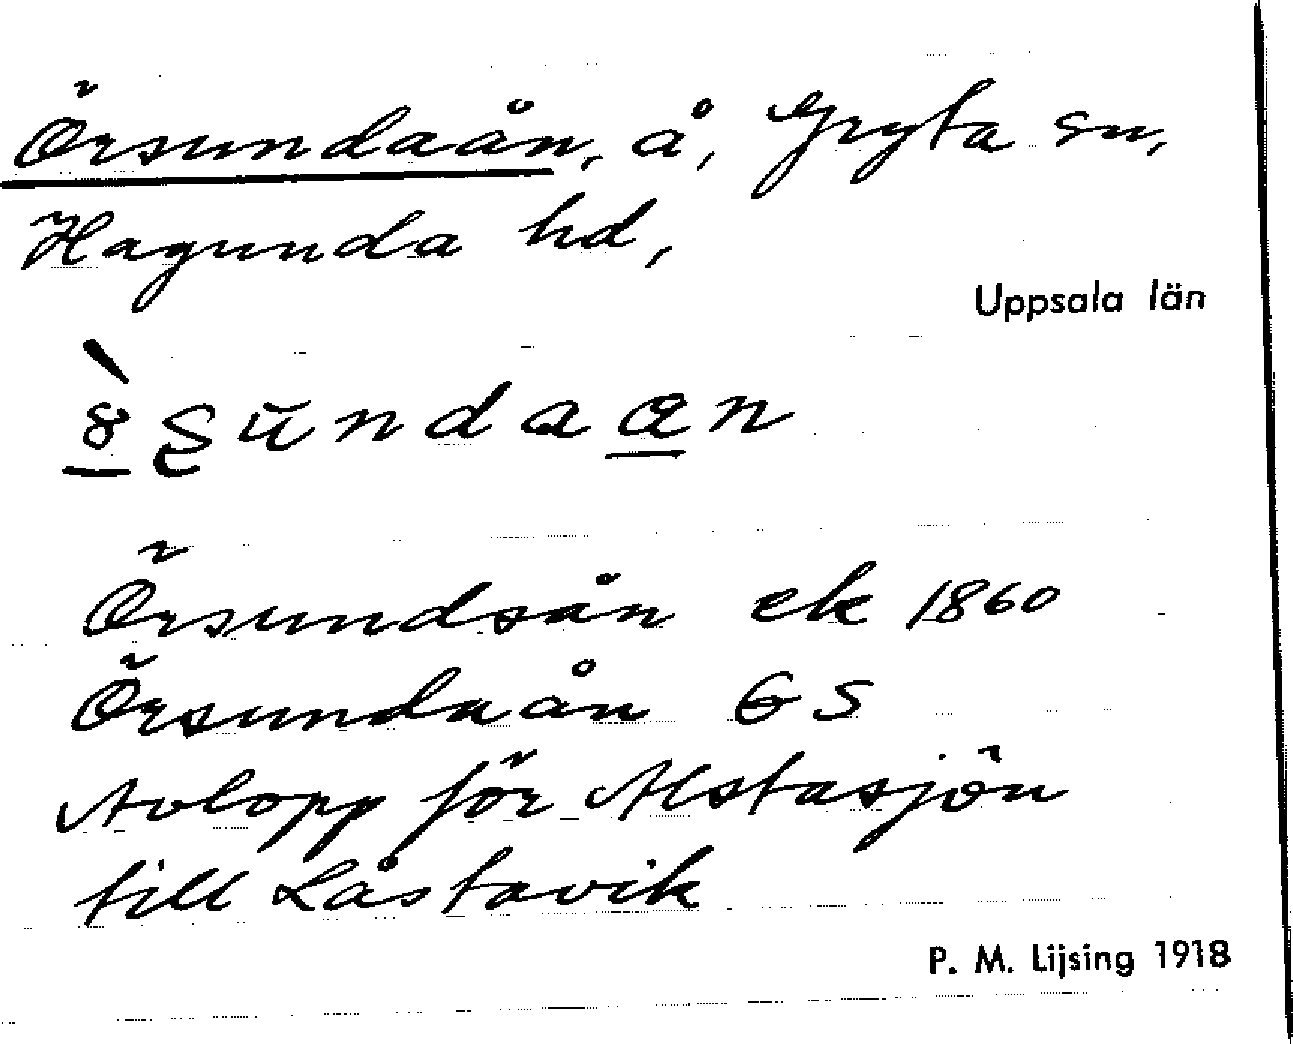 Örsundaån, å, Gryta sn,
Hagunda hd,
Uppsala län
Örsundsån ek 1860
Örsundaån GS
Avlopp för Alstasjön
till Låstavik
P. M. Lijsing 1918